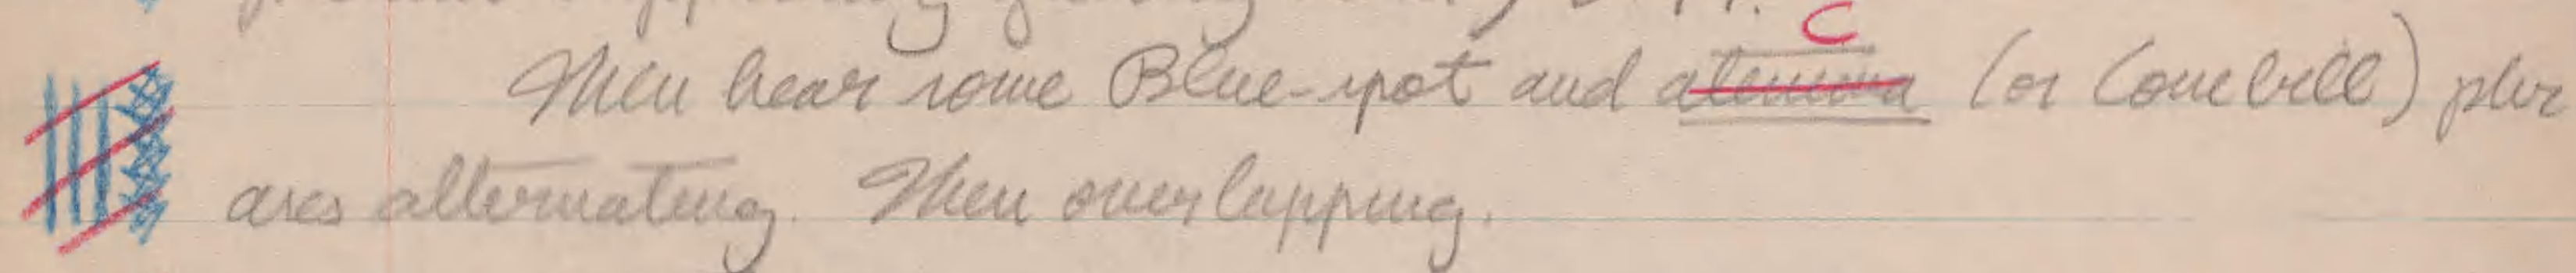 C
Then hear some Blue-spot and aterrima (or Conebill) plur
ases alternating. Then overlapping.